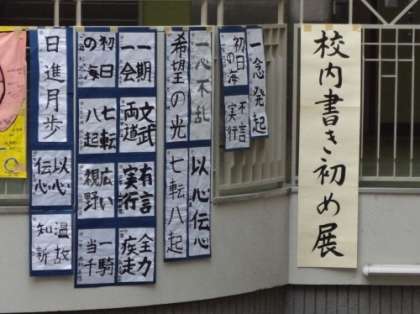 校内書き初め展
一念発起
初日の海
不言実行
一心不乱
以心伝心
希望の光
七転八起
一期一会
文武両道
有言実行
全力疾走
初日の海
七転八起
広い視野
一騎当千
日進月歩
以心伝心
温故知新